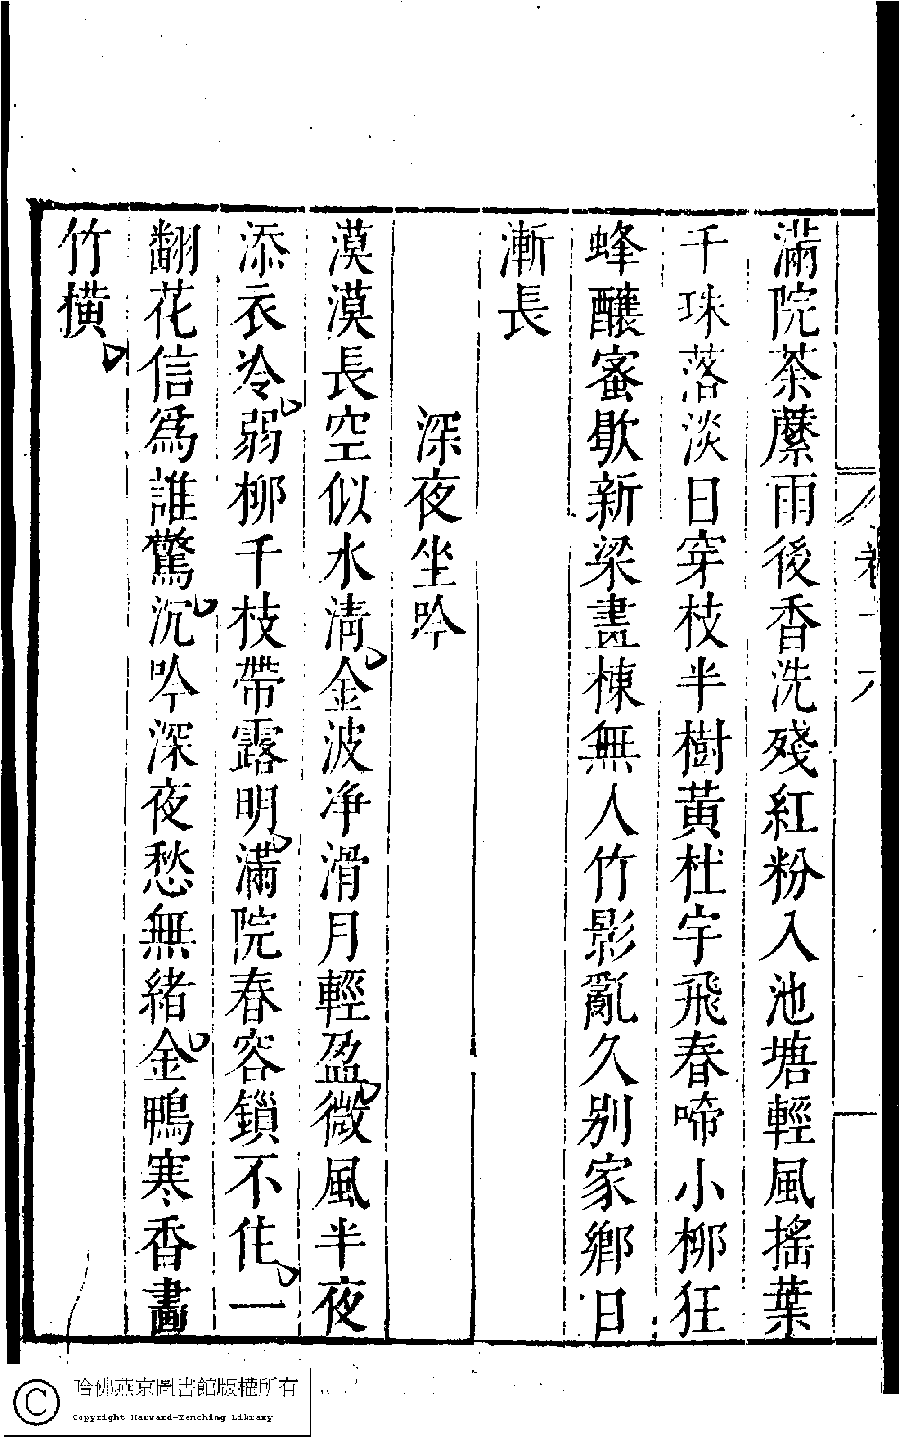 滿院荼蘼雨後香洗殘紅粉入池塘輕風搖葉
千珠落淡日穿枝半樹黃杜宇飛春啼小柳狂
蜂釀蜜歇新梁畫棟無人竹影亂久别家鄉日
漸長
深夜坐吟
漠漠長空似水清金波净滑月輕盈微風半夜
添衣冷弱柳千枝帶露明滿院春容鎖不住一
翻花信爲誰驚沉吟深夜愁無緒金鴨寒香畫
竹橫
哈佛燕京圖書館版權所有
Copyright Harvard-Yenching Library